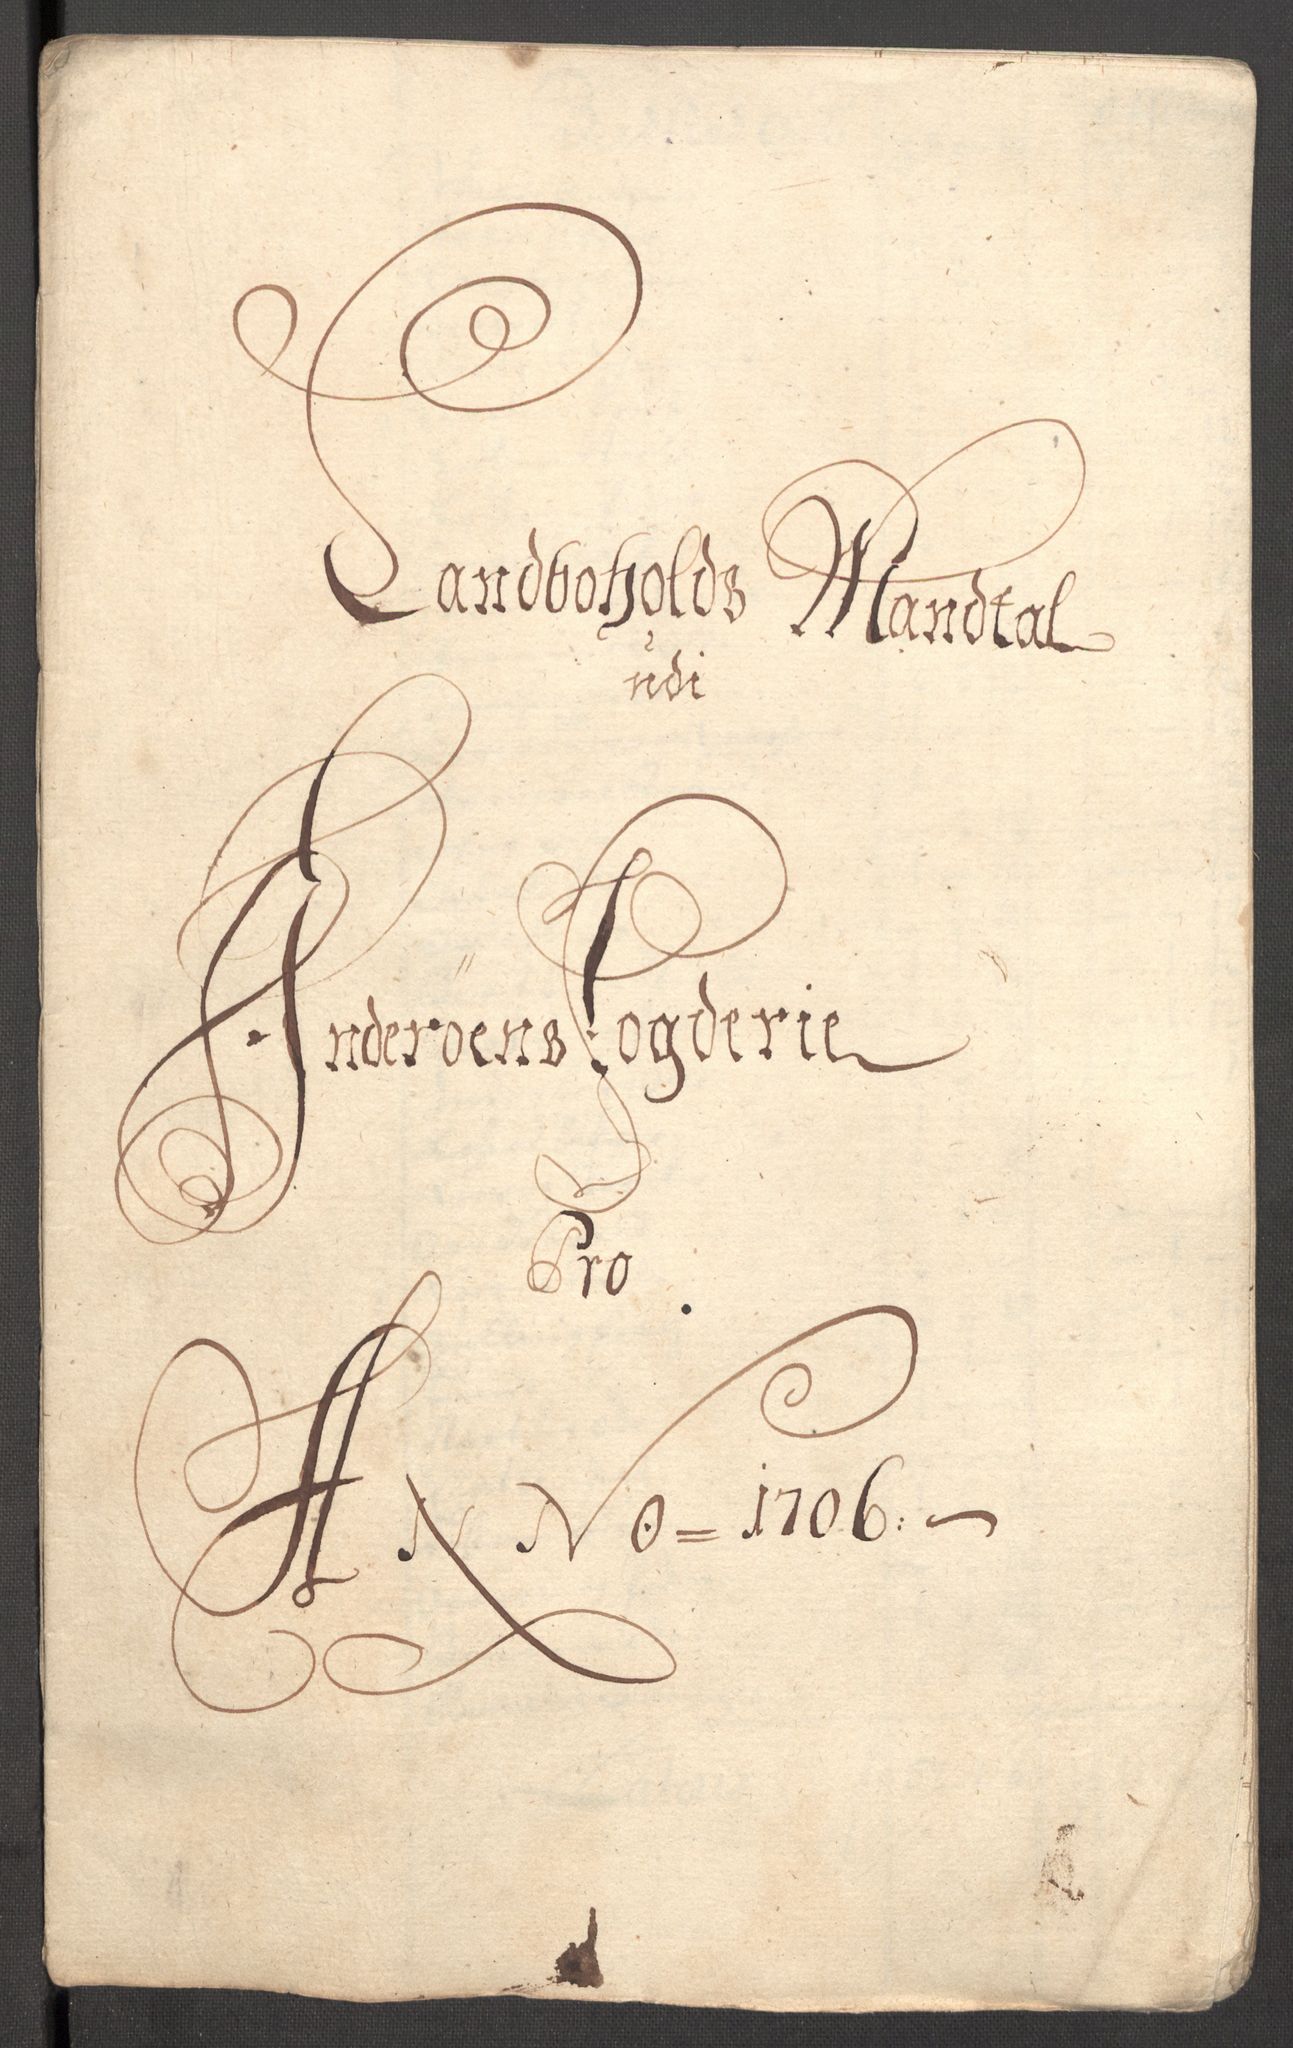 Landboholds Mandtal
udi
Inderöens Fogderie
Pro
ANNO = 1706: